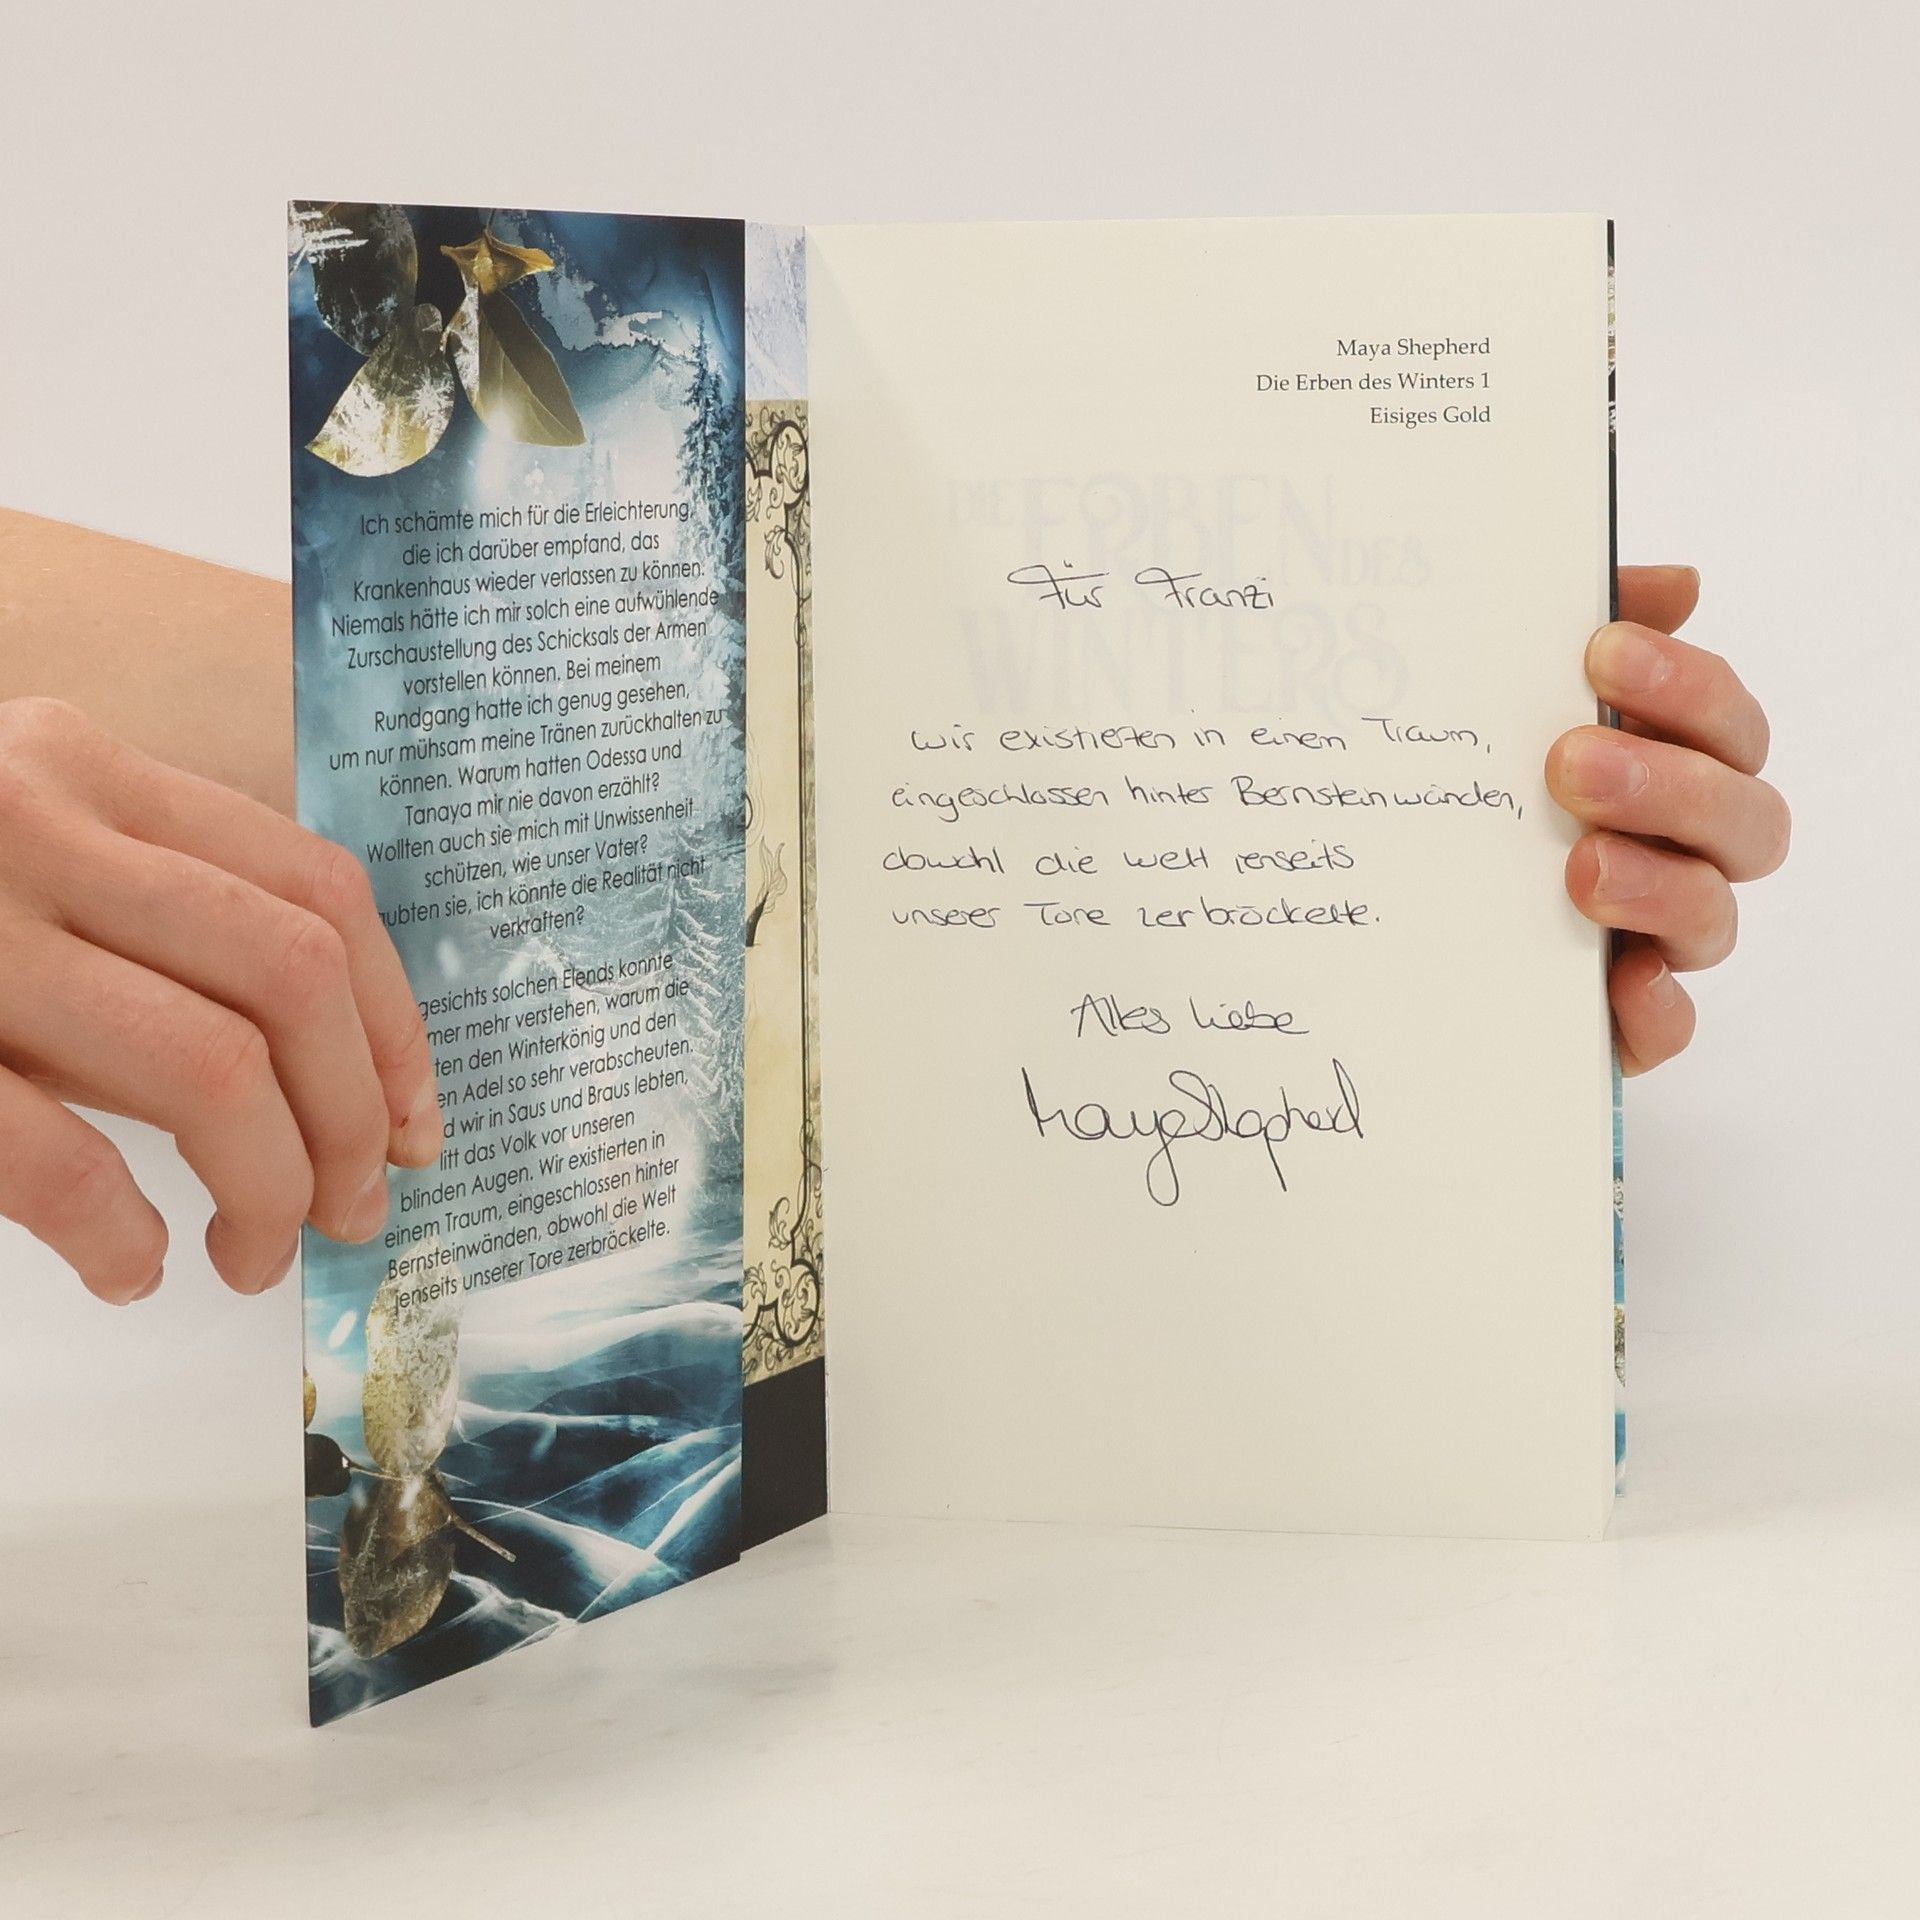 Ich schämte mich für die Erleichterung,
die ich darüber empfand, das
Krankenhaus wieder verlassen zu können.
Niemals hätte ich mir solch eine aufwühlende
Zurschaustellung des Schicksals der Armen
vorstellen können. Bei meinem
Rundgang hatte ich genug gesehen,
um nur mühsam meine Tränen zurückhalten zu
können. Warum hatten Odessa und
Tanaya mir nie davon erzählt?
Wollten auch sie mich mit Unwissenheit
schützen, wie unser Vater?
ubten sie, ich könnte die Realität nicht
verkraften?
gesichts solchen Elends konnte
mer mehr verstehen, warum die
ten den Winterkönig und den
en Adel so sehr verabscheuten.
d wir in Saus und Braus lebten,
litt das Volk vor unseren
blinden Augen. Wir existierten in
einem Traum, eingeschlossen hinter
Bernsteinwänden, obwohl die Welt
jenseits unserer Tore zerbröckelte.
Maya Shepherd
Die Erben des Winters 1
Eisiges Gold
DIE ERBEN DES
WINTERS
Für Franzi
Wir existierten in einem Traum,
eingeschlossen hinter Bernsteinwänden,
obwohl die Welt jenseits
unserer Tore zerbröckelte.
Alles Liebe
Maya Shepherd